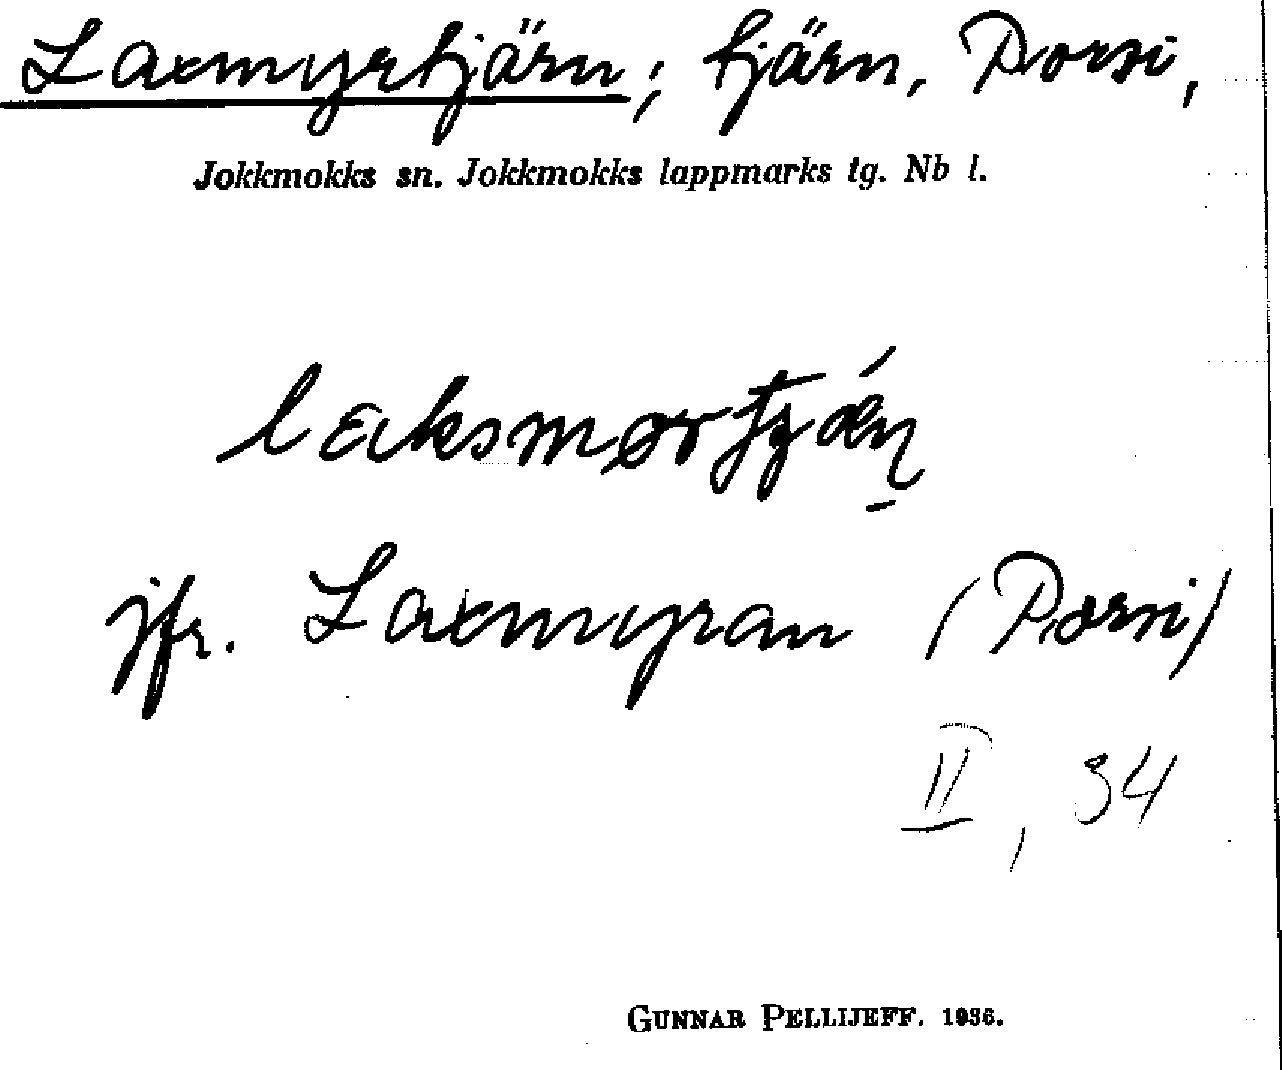 Laxmyrtjärn; tjärn, Porsi,
Jokkmokks sn. Jokkmokks lappmarks tg. Nb l.
jfr. Laxmyran (Porsi)
II, 34
GUNNAR PELLIJEFF. 1936.